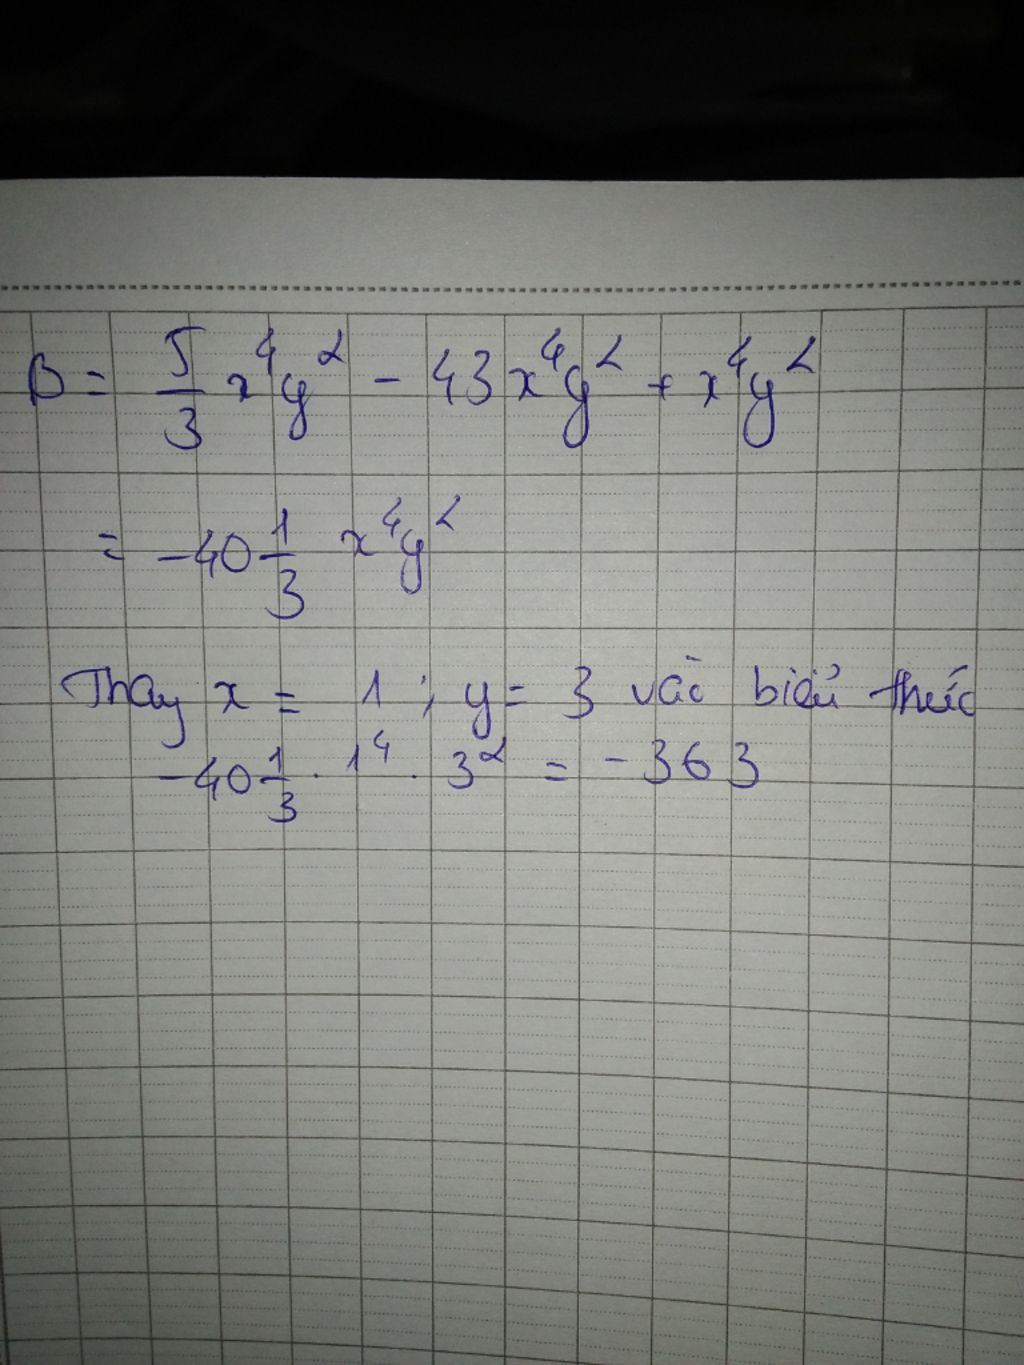 B = 5/3 x⁴y² - 43x⁴y² + x⁴y²
= -40 1/3 x⁴y²
Thay x = 1 ; y = 3 vào biểu thức
-40 1/3 . 1⁴ . 3² = -363